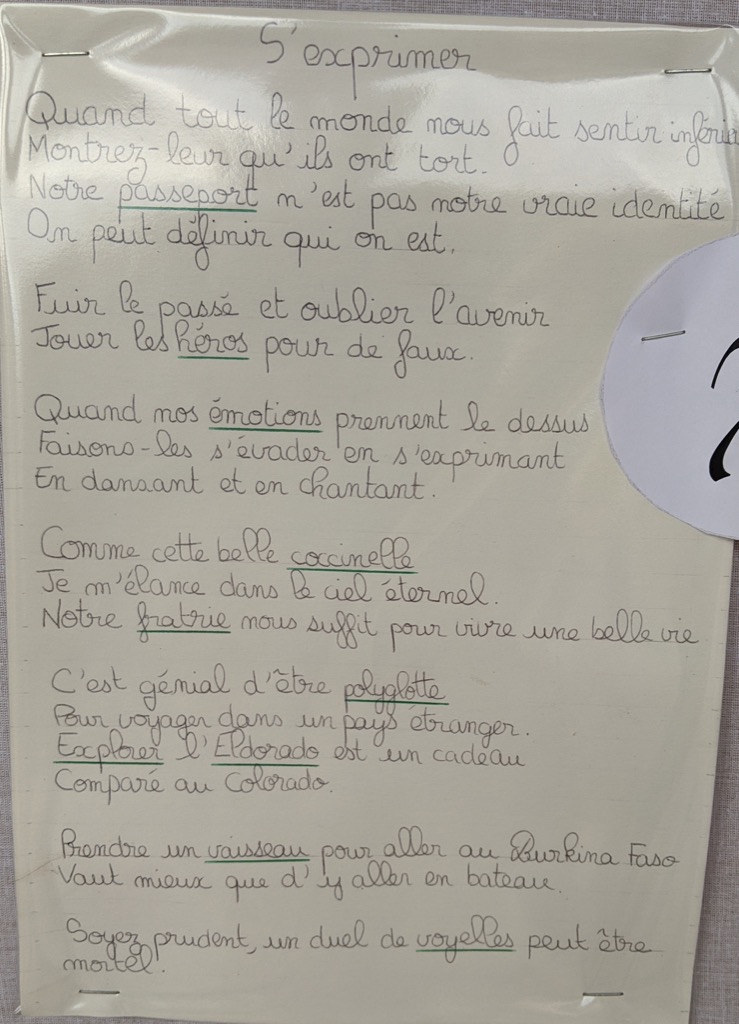 S'exprimer
Quand tout le monde nous fait sentir inférie
Montrez-leur qu'ils ont tort.
Notre passeport n'est pas notre vraie identité
On peut définir qui on est.
Fuir le passé et oublier l'avenir
Jouer les héros pour de faux.
Quand nos émotions prennent le dessus
Faisons-les s'évader en s'exprimant
En dansant et en chantant.
Comme cette belle coccinelle
Je m'élance dans le ciel éternel.
Notre fratrie nous suffit pour vivre une belle vie
C'est génial d'être polyglotte
Pour voyager dans un pays étranger.
Explorer l'Eldorado est un cadeau
Comparé au Colorado.
Prendre un vaisseau pour aller au Burkina Faso
Vaut mieux que d'y aller en bateau.
Soyez prudent, un duel de voyelles peut être
mortel.